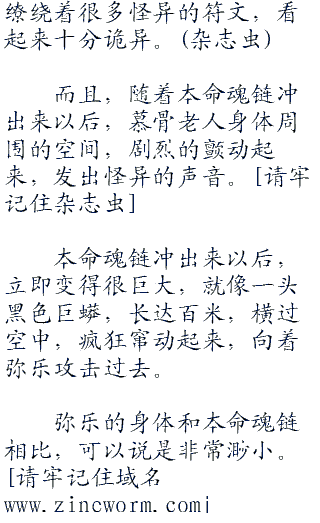 缭绕着很多怪异的符文，看
起来十分诡异。(杂志虫)
而且，随着本命魂链冲
出来以后，慕骨老人身体周
围的空间，剧烈的颤动起
来，发出怪异的声音。[请牢
记住杂志虫]
本命魂链冲出来以后，
立即变得很巨大，就像一头
黑色巨蟒，长达百米，横过
空中，疯狂窜动起来，向着
弥乐攻击过去。
弥乐的身体和本命魂链
相比，可以说是非常渺小。
[请牢记住域名
www.zincworm.com]